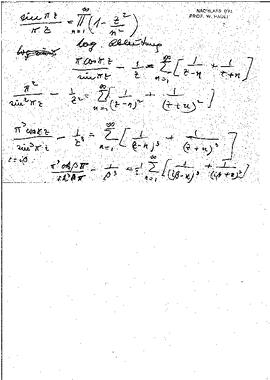 NACHLASS Prof. W. PAULI
sin πz / πz = ∏_{n=1}^{∞} (1 - z²/n²)
log Ableitung
π cos πz / sin πz - 1/z = ∑_{n=1}^{∞} [1/(z-n) + 1/(z+n)]
π² / sin² πz - 1/z² = ∑_{n=1}^{∞} [1/(z-n)² + 1/(z+n)²]
π³ cos πz / sin³ πz - 1/z³ = ∑_{n=1}^{∞} [1/(z-n)³ + 1/(z+n)³]
z=iβ:
- 1/β³ = ∑_{n=1}^{∞} [1/(iβ-n)³ + 1/(iβ+n)³]